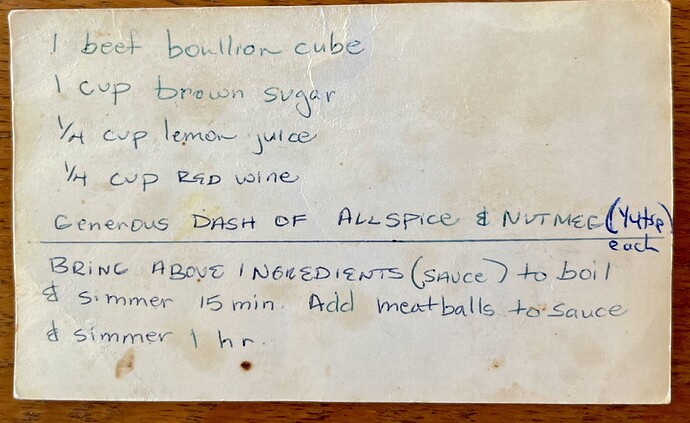 1 beef boullion cube
1 cup brown sugar
1/4 cup lemon juice
1/4 cup RED wine
Generous DASH OF ALLSPICE & NUTMEG (1/4 tsp)
each
BRING ABOVE INGREDIENTS (SAUCE) to boil
& simmer 15 min. Add meatballs to sauce
& simmer 1 hr.